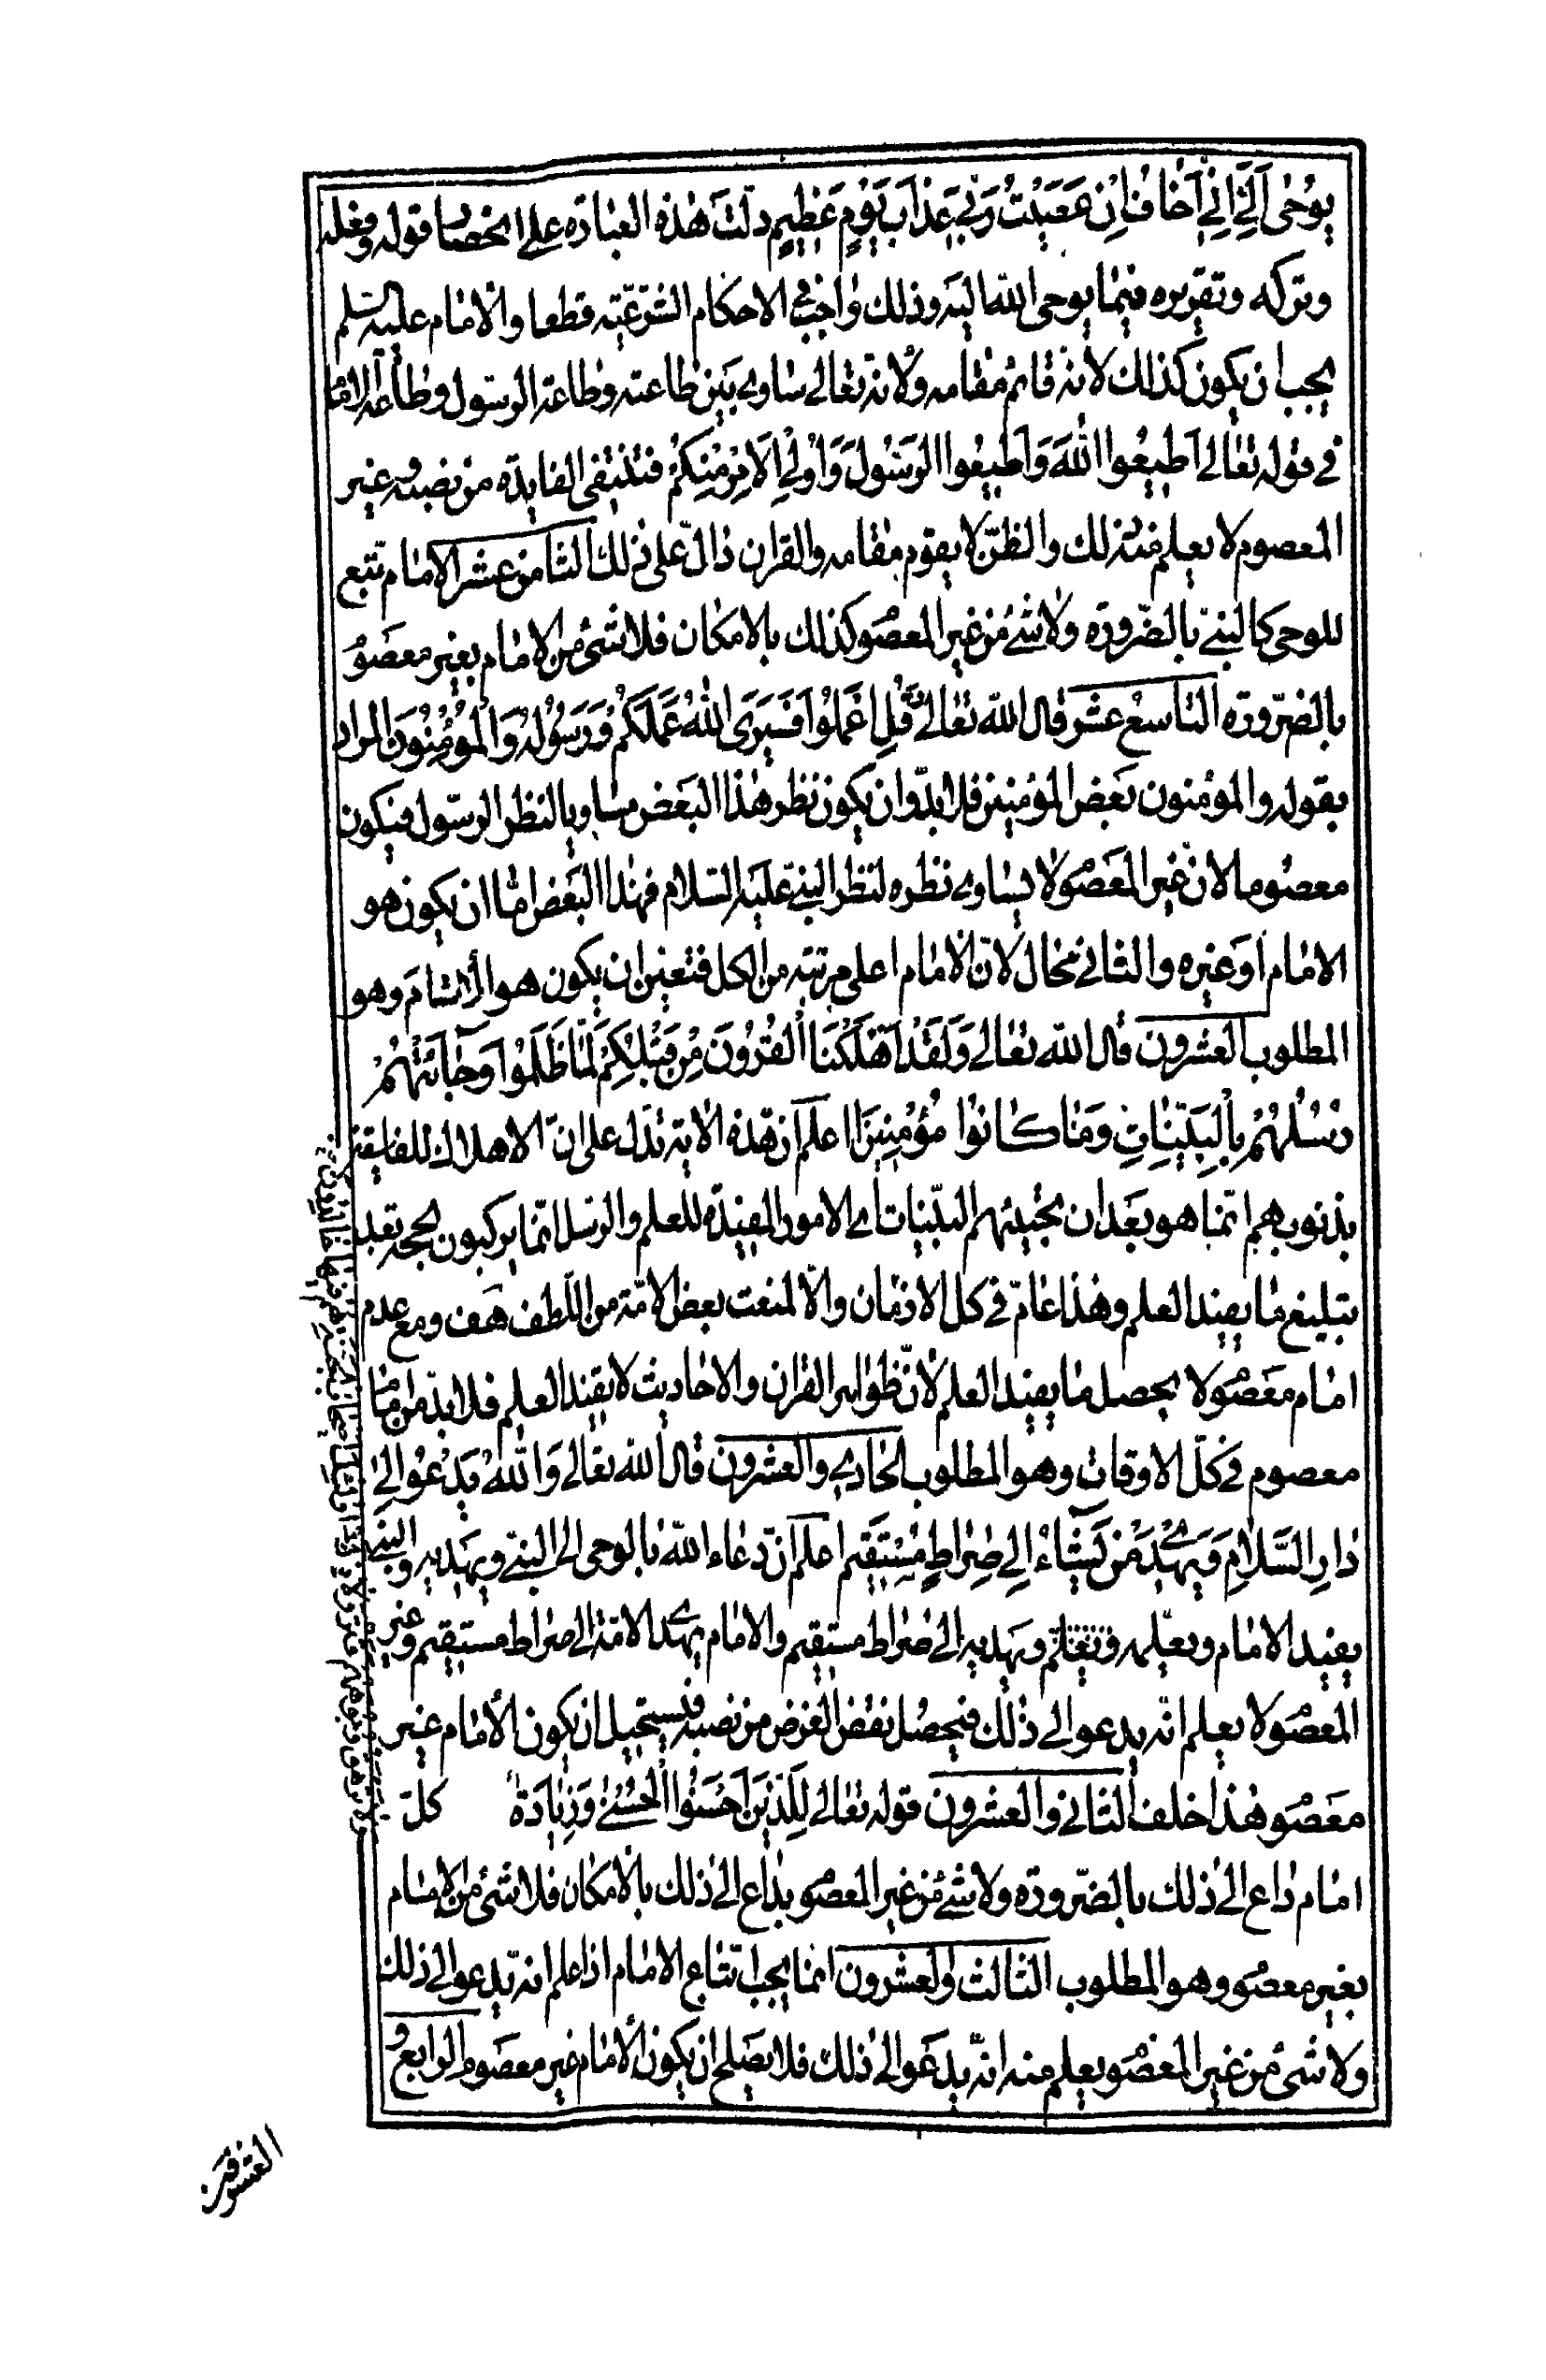 يُوحٰى اِلَيَّ اِنّي اَخافُ اِنْ عَصَيْتُ رَبّي عَذابَ يَوْمٍ عَظيمٍ دلّت هذه العبارة على انحصار قوله وفعله
وتركه وتقريره فيما يوحى الله اليه وذلك واجب في الاحكام الشرعيّة قطعا والامام عليه السلم
يجب ان يكون كذلك لانه قائم مقامه ولانه تعالى ساوى بين طاعته وطاعة الرسول وطاعة الامام
في قوله تعالى اَطيعُوا اللّٰهَ وَاَطيعُوا الرَّسُولَ وَاُولِي الْاَمْرِ مِنْكُمْ فتنتفى الفايدة من نصبه وغير
المعصوم لا يعلم منه ذلك والظنّ لا يقوم مقامه والقران دالّ على ذلك الثامن عشر الامام تتبع
للوحى كالنبي بالضرورة ولا شئ من غير المعصو كذلك بالامكان فلا شئ من الامام بغير معصو
بالضرورة التاسع عشر قال اللّه تعالى قُلِ اعْمَلُوا فَسَيَرَى اللّٰهُ عَمَلَكُمْ وَرَسُولُهُ وَالْمُؤْمِنُونَ المراد
بقوله والمؤمنون بعض المؤمنين فلا بدّ وان يكون نظر هذا البعض مساويا لنظر الرسول فيكون
معصوما لانّ غير المعصو لا يساوى نظره لنظر النبي عليه السلام فهذا البعض امّا ان يكون هو
الامام او غيره والثاني محال لانّ الامام اعلى مرتبة من الكل فتعين ان يكون هو الامام وهو
المطلوب العشرون قال اللّه تعالى وَلَقَدْ اَهْلَكْنَا الْقُرُونَ مِنْ قَبْلِكُمْ لَمّا ظَلَمُوا وَجآءَتْهُمْ
رُسُلُهُمْ بِالْبَيِّنٰاتِ وَمٰا كٰانُوا مُؤْمِنينَ اعلم ان هذه الاية تدل على انّ الاهلاك للفايقة
بذنوبهم انّما هو بعد ان تجيئهم البيّنات اى الامور المفيدة للعلم والرسل انّما يركبون الحجة بعد
بتبليغ ما يفيد العلم وهذا عامّ في كل الازمان والّا لمنعت بعض الامّة من اللّطف هف ومع عدم
امام معصو لا يحصل ما يفيد العلم لانّ ظواهر القران والاحاديث لا يفيد العلم فلا بدّ من امام
معصوم في كلّ الاوقات وهو المطلوب الحادي والعشرون قال اللّه تعالى وَاللّٰهُ يَدْعُوا اِلى
دارِ السَّلامِ وَيَهْدي مَنْ يَشآءُ اِلى صِراطٍ مُسْتَقيم اعلم ان دعاء اللّه بالوحى الى النبي ويهديه والنبي
يفيد الامام ويعلّمه ويهديه الى صراط مستقيم والامام يهدى الامة الى صراط مستقيم وغير
المعصو لا يعلم انّه يدعو الى ذلك فيحصل نقض الغرض من نصبه فيستحيل ان يكون الامام غير
معصو هذا خلف الثاني والعشرون قوله تعالى لِلَّذينَ اَحْسَنُوا الْحُسْنى وَزِيادَةٌ كلّ
امام داع الى ذلك بالضرورة ولا شئ من غير المعصو بداع الى ذلك بالامكان فلا شئ من الامام
بغير معصو وهو المطلوب الثالث والعشرون انما يجب اتّباع الامام اذا علم انه يدعو الى ذلك
ولا شئ من غير المعصو يعلم منه انّه يدعو الى ذلك فلا يصلح ان يكون الامام غير معصوم الرابع و
العشرون